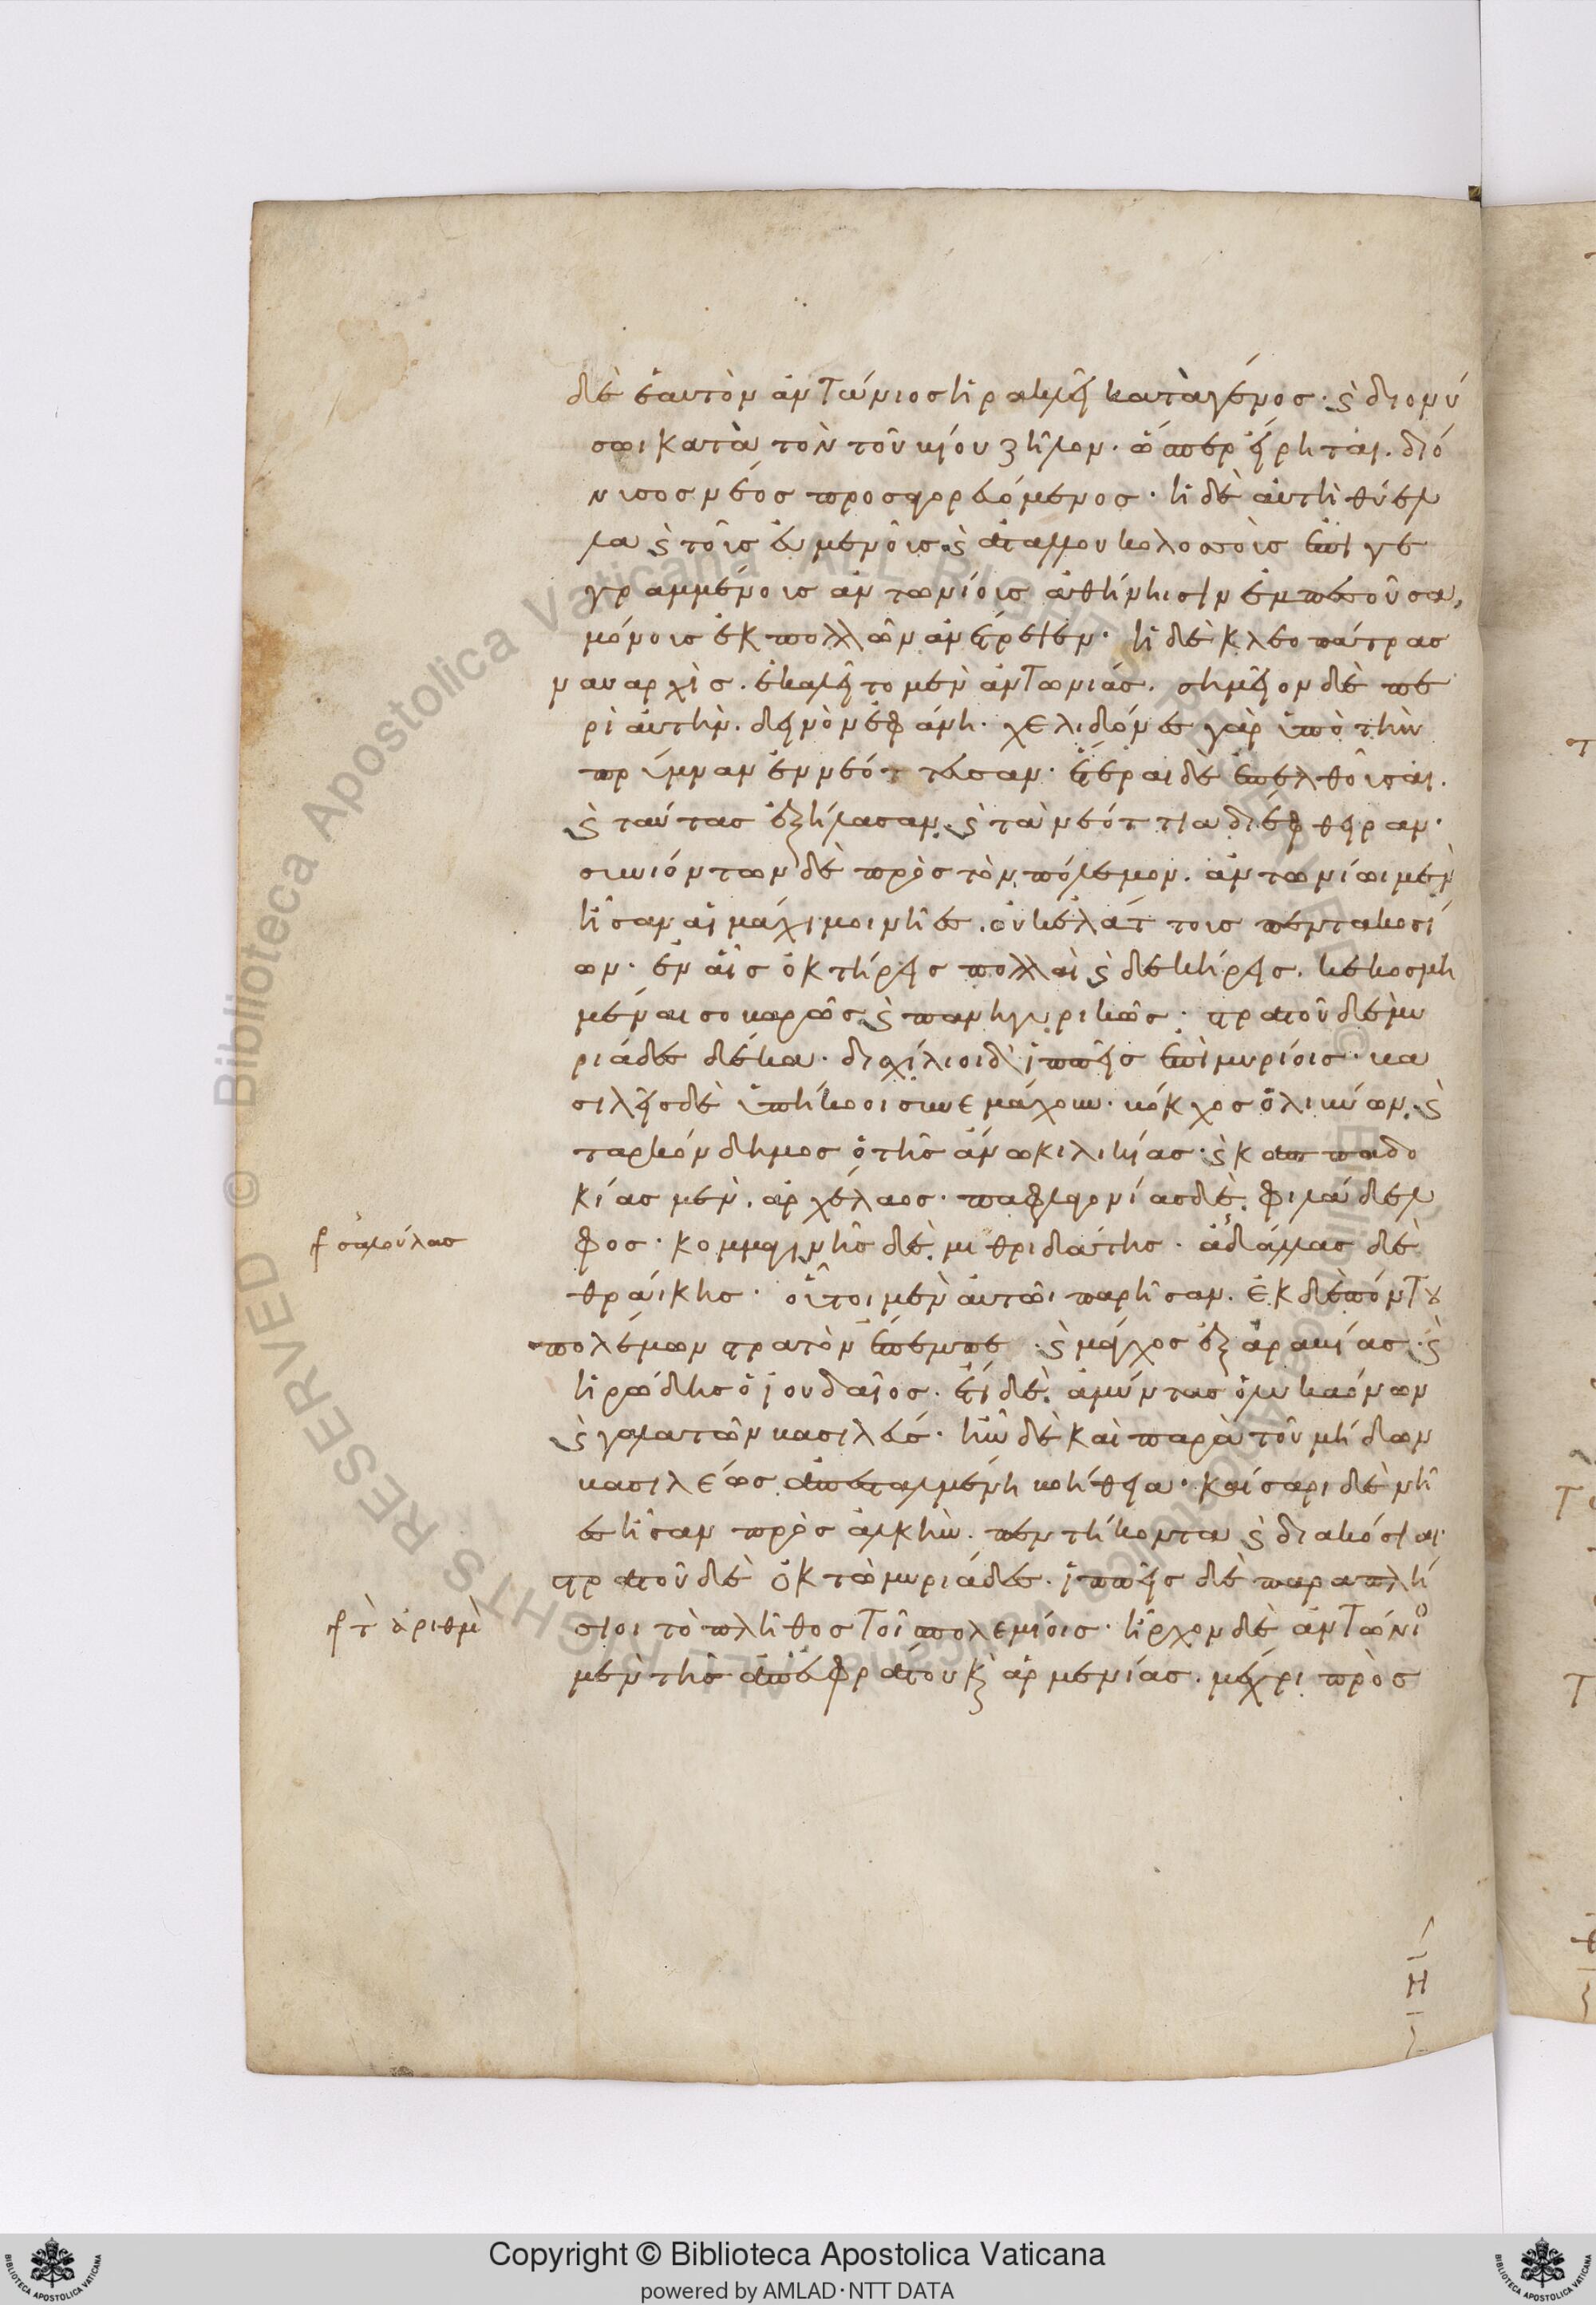 δὲ ἑαυτὸν ἀντώνιος ἡρακλεῖ κατὰ γένος· ϛ̀ διονύ
σωι κατὰ τὸν τοῦ βίου ζῆλον· ὥσπερ εἴρηται. διό
νυσος νέος προσαγορευόμενος· ἡ δὲ αὐτὴ θύελ
λα ϛ̀ τοῖς εὐμενοῖς ϛ̀ ἀττάλου κολοσσοῖς ἐπιγε
γραμμένοις ἀντωνίοις ἀθήνησιν ἐμπεσοῦσα,
μόνοις ἐκ πολλῶν ἀνέτρεψεν· ἡ δὲ κλεοπάτρας
ναυαρχὶς. ἐκαλεῖτο μὲν ἀντωνιάς. σημεῖον δὲ πε
ρὶ αὐτὴν. δεινὸν ἐφάνη· χελιδόνες γὰρ ὑπὸ τὴν
πρύμναν ἐνεόττευσαν· ἕτεραι δὲ ἐπελθοῦσαι.
ϛ̀ ταύτας ἐξήλασαν. ϛ̀ τὰ νεόττια διέφθειραν·
συνιόντων δὲ πρὸς τὸν πόλεμον. ἀντωνίωι μὲν
ἦσαν αἱ μάχιμοι νῆες. οὐκ ἐλάττους πεντακοσί
ων· ἐν αἷς ὀκτήρεις πολλαὶ ϛ̀ δεκήρεις. κεκοσμη
μέναι σοβαρῶς ϛ̀ πανηγυρικῶς· στρατοῦ δὲ μυ
ριάδες δέκα· δισχίλιοι δ' ἱππεῖς ἐπὶ μυρίοις· βα
σιλεῖς δὲ ὑπήκοοι συνεμάχουν· βόκχος ὁ λιβύων. ϛ̀
ταρκόνδημος ὁ τῆς ἄνω κιλικίας· ϛ̀ καππαδο
κίας μὲν. ἀρχέλαος· παφλαγονίας δὲ. φιλάδελ
φος· κομμαγηνῆς δὲ. μιθριδάτης· ἀδάλλας δὲ
ſ σαδούλας
θράικης· οὗτοι μὲν αὐτῶι παρῆσαν. ἐκ δὲ πόντου
πολέμων στρατὸν ἔπεμπε· ϛ̀ μάγχος ἐξ ἀραβίας· ϛ̀
ἡρώδης ὁ ἰουδαῖος. ἔτι δὲ. ἀμύντας ὁ λυκαόνων
ϛ̀ γαλατῶν βασιλεύς· ἦν δὲ καὶ παρὰ τοῦ μήδων
βασιλέως ἀπεσταλμένη βοήθεια· καίσαρι δὲ νῆ
ες ἦσαν πρὸς ἀλκὴν. πεντήκοντα ϛ̀ διακόσιαι·
στρατοῦ δὲ ὀκτὼ μυριάδες. ἱππεῖς δὲ παραπλή
ſ τ̀ ἀριθμὸ
σιοι τὸ πλῆθος τοῖς πολεμίοις· ἦρχον δὲ ἀντώνιο
μὲν τῆς ἀπ' εὐφράτου κ̀ ἀρμενίας. μέχρι πρὸς
Η
Copyright © Biblioteca Apostolica Vaticana
powered by AMLAD·NTT DATA